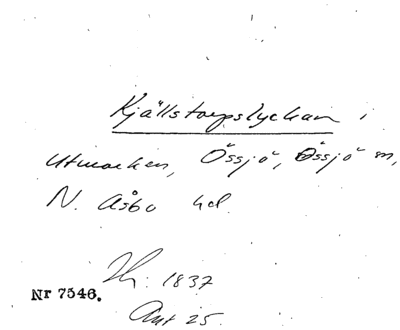 Kjällstorpslyckan i
utmarken, Össjö, Össjö sn,
N. Åsbo hd.
1837
Nr 7546.
Akt 25.